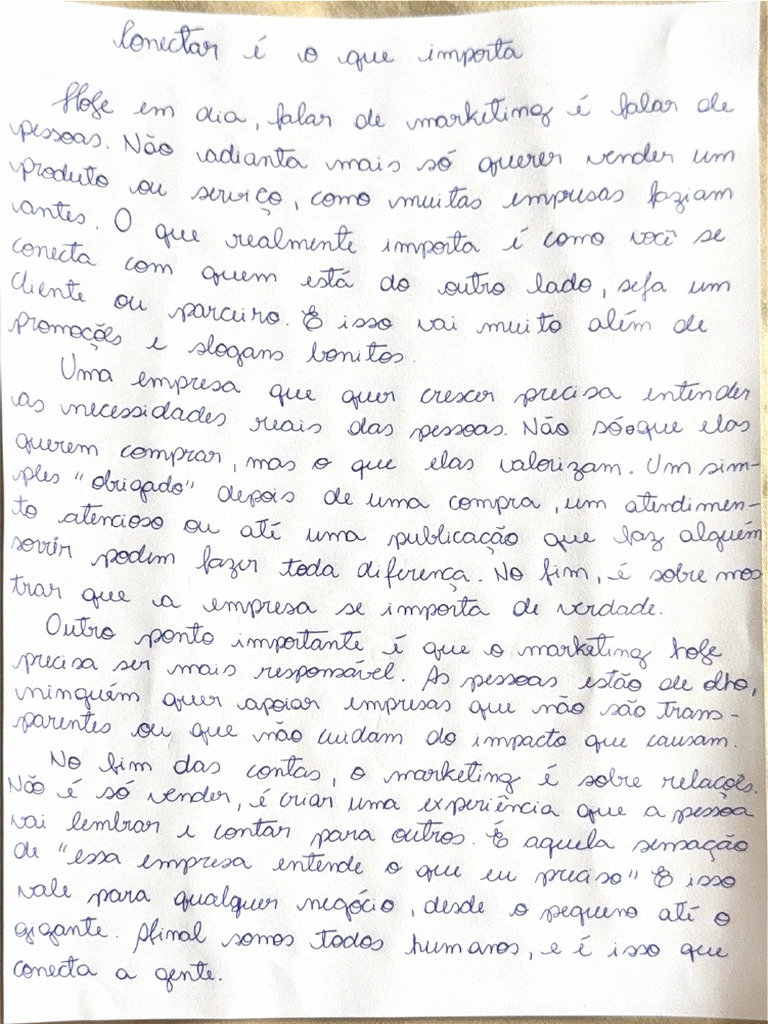 Conectar é o que importa
Hoje em dia, falar de marketing é falar de
pessoas. Não adianta mais só querer vender um
produto ou serviço, como muitas empresas faziam
antes. O que realmente importa é como você se
conecta com quem está do outro lado, seja um
cliente ou parceiro. E isso vai muito além de
promoções e slogans bonitos.
Uma empresa que quer crescer precisa entender
as necessidades reais das pessoas. Não só o que elas
querem comprar, mas o que elas valorizam. Um sim-
ples "obrigado" depois de uma compra, um atendimen-
to atencioso ou até uma publicação que faz alguém
sorrir podem fazer toda diferença. No fim, é sobre mos
trar que a empresa se importa de verdade.
Outro ponto importante é que o marketing hoje
precisa ser mais responsável. As pessoas estão de olho,
ninguém quer apoiar empresas que não são trans-
parentes ou que não cuidam do impacto que causam.
No fim das contas, o marketing é sobre relações.
Não é só vender, é criar uma experiência que a pessoa
vai lembrar e contar para outros. É aquela sensação
de "essa empresa entende o que eu preciso" E isso
vale para qualquer negócio, desde o pequeno até o
gigante. Afinal somos todos humanos, e é isso que
conecta a gente.